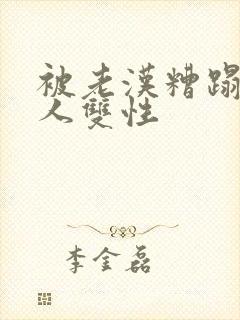 被老漢糟蹋
人雙性
李金磊